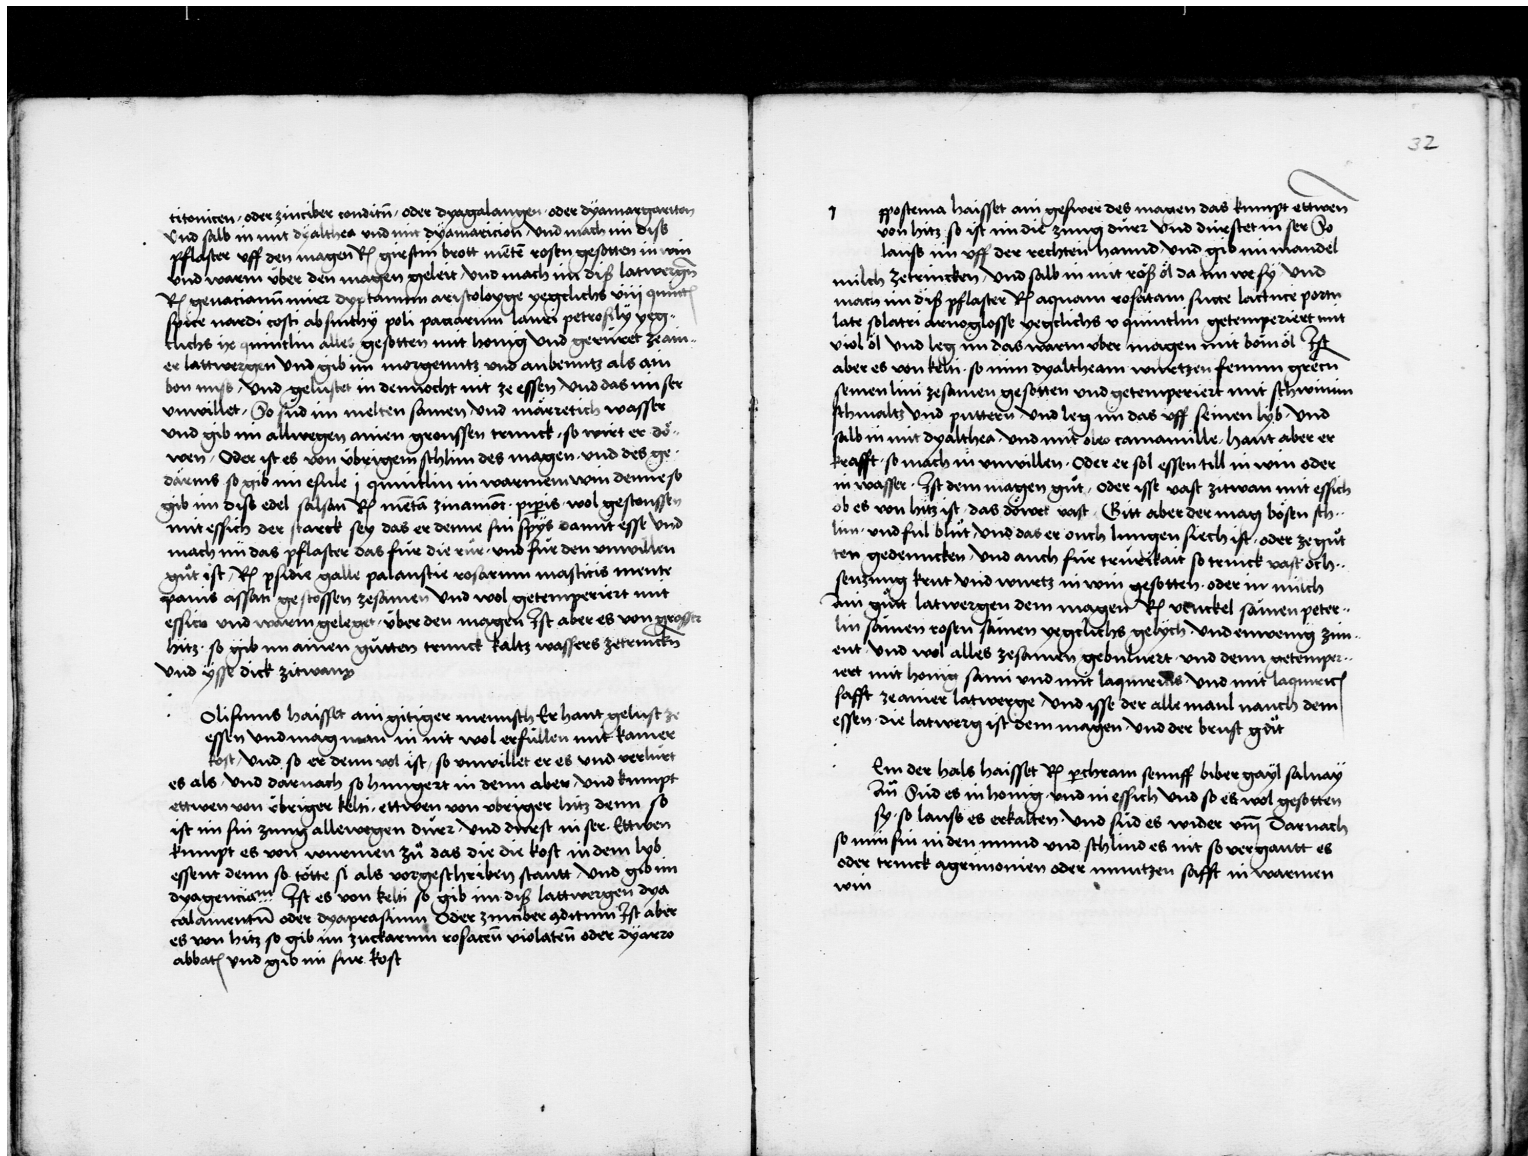 titonicen · oder zinciber conditū · oder dyagalangen · oder dyamargariton
Vnd salb in mit dyalthea vnd mit dyamaricion Vnd mach im diss
pflaster vff den magen Rͨ girstin brott mētē rosen gesotten in win
vnd warm über den magen geleit · Vnd mach im diß latwergñ
Rͨ genacianū mirr dyptamum aristoloyge yegclichs viij quintl
spice nardi costi absinthÿ poli panarum lauri petrosily yeg-
clichs ix quintlin alles gesotten mit honig Vnd gerüret ze ain-
er lattwergen Vnd gib im morgenntz vnd aubenntz als ain
bon nuss · Vnd gelustet in dennocht nit ze essen · Vnd das im ser
vnwillet · So süd im melten samen · Vnd märretich wasser
vnd gib im allwegen ainen groussen trunck · so wirt er dö-
wen · Oder ist es von übrigem schlim des magen · vnd des ge-
därms so gib im esule j quintlin in warmem win denne so
gib im diss edel salsam Rͨ mētā zinamōt · pipis · wol gestoussen
mit essich der starck sey das er denne sin spÿs damit esse Vnd
mach im das pflaster das für die rür · vnd für den vnwillen
gůt ist · Rͨ psidie galle palaustie rosarum masticis mente
panis assati gestossen zesamen Vnd wol getemperiert mit
essich vnd warm geleget · über den magen Ist aber es von grosser
hitz · so gib im ainen gůtten trunck kaltz wassers zetrincken
Vnd ysse dick zitwann
Olisinus haisset ain gitiger mennsch Er haut gelust ze
essen vnd mag man in nit wol erfüllen mit kainer
kost · Vnd so er denn vol ist · so vnwillet er es vnd verlürt
es als · Vnd darnach so hungert in denn aber · Vnd kumpt
ettwen von übriger kelti · ettwen von vbriger hitz denn so
ist im sin zung allewegen dürr · Vnd dürst in ser · Ettwen
kumpt es von wurmen zů das die die kost in dem lyb
essent denn so tötte si als vorgeschriben stautt · Vnd gib im
dyagencia Ist es von kelti so gib im diß lattwergen dya
calamentū oder dyaprasium Oder zinciber 9ditum Ist aber
es von hitz so gib im zuckarum rosaceū violateū oder dyarro
abbatͥ vnd gib im für kost
32
Appostema haisset ain geswer des magen das kumpt ettwen
von hitz so ist im die zung dürr Vnd dürstet in ser So
lauss im vff der rechten hannd · Vnd gib im mandel
milch zetrincken · Vnd salb in mit röß öl da im we sy Vnd
mach im diß pflaster Rͨ aquam rosatam succe lactuce portu
late solatri arnoglosse yegclichs v quintlin getemperiert mit
viol öl Vnd leg im das warm vber magen mit boim öl Ist
aber es von kelti · so nim dyaltheam wurtzen fenum grecū
semen lini zesamen gesotten vnd getemperiert mit schwinim
schmaltz Vnd puttern · Vnd leg im das vff seinen lyb · Vnd
salb in mit dyalthea · Vnd mit oleo camamille · haut aber er
krafft · so mach in vnwillen · Oder er sol essen till in win oder
in wasser · Ist dem magen gůt · oder isse vast zitwan mit essich
ob es von hitz ist · das döwet vast · Gitt aber der mag bösen sch-
lim · vnd ful blůt · Vnd das er ouch lungen siech ist · oder ze gůt
ten gedenncken · Vnd auch für trurikait so trinck vast och-
senzung krut Vnd wurtz in win gesotten · oder in milch
Ain gůt latwergen dem magen Rͨ venckel sämen peter-
lin sämen rosen sämen yegclichs gelych · Vnd ein wenig zim-
ent · Vnd wol alles zesamen gebuluert · vnd denn getemper-
iert mit honig saim vnd mit laquericis · Vnd mit laquericͥ
safft ze ainer latwerge · Vnd isse der alle maul nauch dem
essen · die latwerg ist dem magen · Vnd der brust gůt
Em der hals haisset Rͨ perchram senuff biber gayl saluay
Alū Süd es in honig · vnd in essich Vnd so es wol gesotten
sy · so lauss es erkalten · Vnd süd es wider Darnach
so nim sin in den mund vnd schlind es nit so vergautt es
oder trinck agrimonien oder muntzen safft in warmen
win